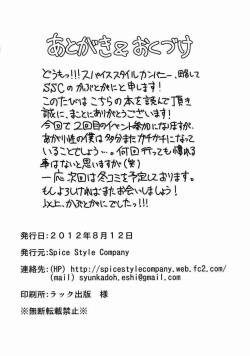 あとがき&おくづけ
どうもっ!!!スパイススタイルカンパニー、略して
SSCのかぶとがにと申します!
このたびはこちらの本を読んで頂き
誠に、まことにありがとうございます!
今回で2回目のイベント参加になりますが、
あかり症の僕は多分またガチガチになって
いることでしょう…。何回行っても慣れる
事はないと思いますが(笑)
一応次回は冬コミを予定しております。
もしよろしければまたお会いしましょう!
以上、かぶとがにでした!!!
発行日:2012年8月12日
発行元:Spice Style Company
連絡先:(HP) http://spicestylecompany.web.fc2.com/
(mail) syunkadoh.eshi@gmail.com
印刷所:ラック出版 様
※無断転載禁止※